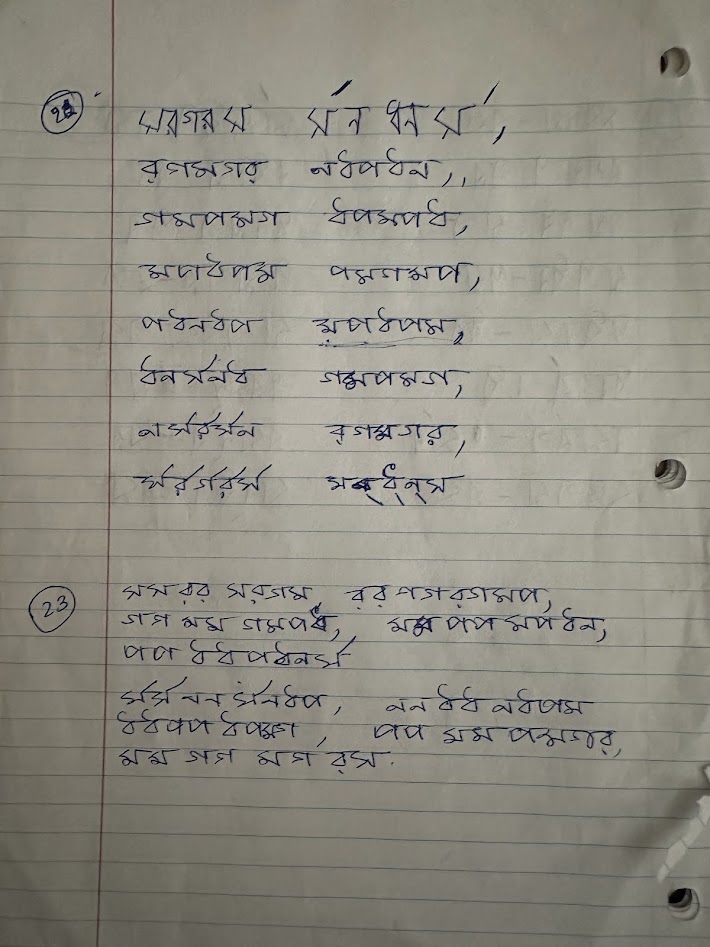 ২২ সরগরস র্সনধনর্স,
রগমগর নধপধন,,
গমপমগ ধপমপধ,
মপধপম পমগমপ,
পধনধপ মপধপম,
ধনর্সনধ গমপমগ,
নর্সর্রর্সন রগমগর,
র্সর্রর্গর্রর্স সন্ধ্ন্স
২৩ সসরর সরগম, রর গগ রগমপ,
গগ মম গমপধ, মম পপ মপধন,
পপ ধধ পধনর্স
র্সর্স নন র্সনধপ, নন ধধ নধপম
ধধ পপ ধপমগ, পপ মম পমগর,
মম গগ মগরস.